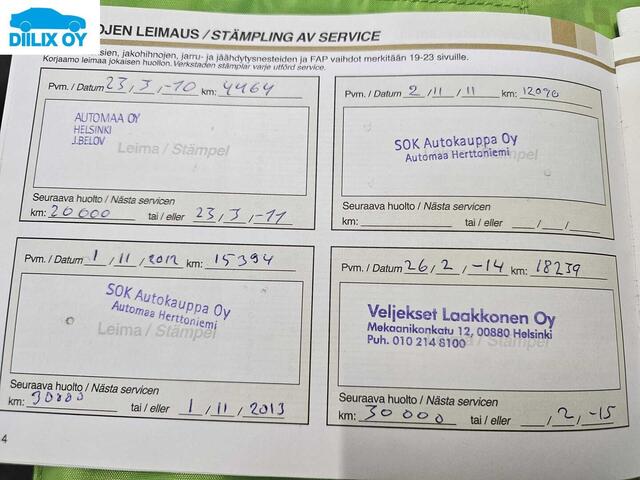 DIILIX OY
OJEN LEIMAUS / STÄMPLING AV SERVICE
sien, jakohihnojen, jarru- ja jäähdytysnesteiden ja FAP vaihdot merkitään 19-23 sivuille.
Korjaamo leimaa jokaisen huollon. Verkstaden stämplar varje utförd service.
Pvm. / Datum 23, 3, -10 km: 4464
AUTOMAA OY
HELSINKI
J.BELOV
Leima / Stämpel
Seuraava huolto / Nästa servicen
km: 20000 tai / eller 23, 3, -11
Pvm. / Datum 2 / 11 / 11 km: 12090
SOK Autokauppa Oy
Automaa Herttoniemi
Seuraava huolto / Nästa servicen
km: tai / eller / /
Pvm. / Datum 1 / 11 / 2012 km: 15394
SOK Autokauppa Oy
Automaa Herttoniemi
Leima / Stämpel
Seuraava huolto / Nästa servicen
km: 30000 tai / eller 1 / 11 / 2013
Pvm. / Datum 26, 2, -14 km: 18239
Veljekset Laakkonen Oy
Mekaanikonkatu 12, 00880 Helsinki
Puh. 010 214 8100
Seuraava huolto / Nästa servicen
km: 30 000 tai / eller / 2, -15
4